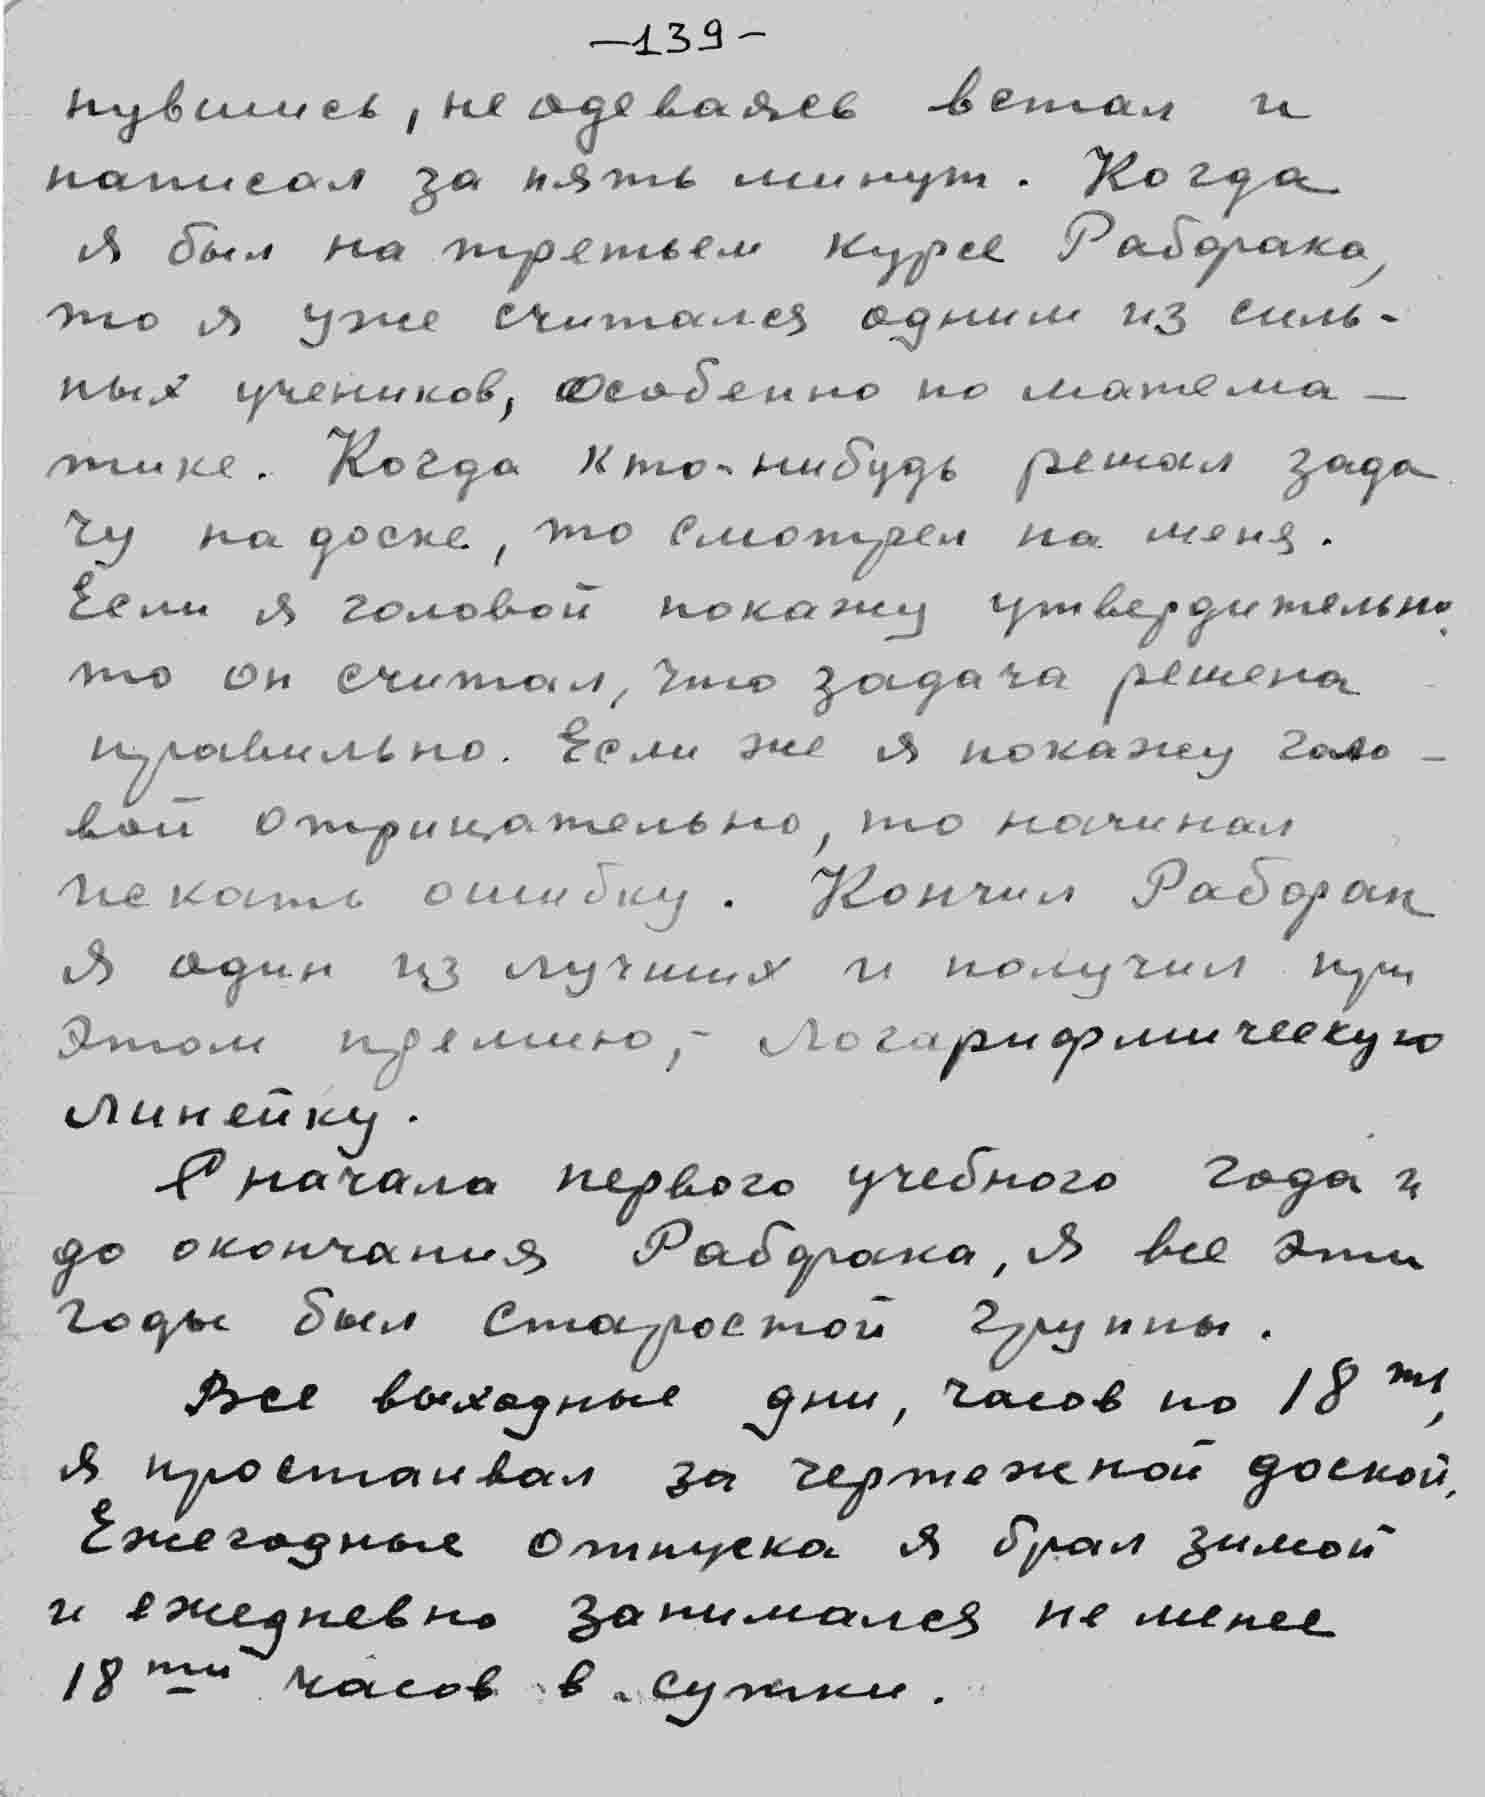 –139–
нувшись, не одеваясь встал и
написал за пять минут. Когда
я был на третьем курсе Рабфака,
то я уже считался одним из силь-
ных учеников, особенно по матема–
тике. Когда кто-нибудь решал зада
чу на доске, то смотрел на меня.
Если я головой покажу утвердительно,
то он считал, что задача решена
правильно. Если же я покажу голо–
вой отрицательно, то начинал
искать ошибку. Кончил Рабфак
я один из лучших и получил при
этом премию,– логарифмическую
линейку.
С начала первого учебного года и
до окончания Рабфака, я все эти
годы был старостой группы.
Все выходные дни, часов по 18 ть,
я простаивал за чертежной доской.
Ежегодные отпуска я брал зимой
и ежедневно занимался не менее
18 ти часов в сутки.